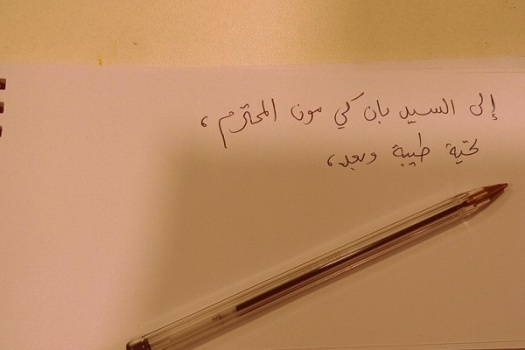 إلى السيد بان كي مون المحترم،
تحية طيبة وبعد،